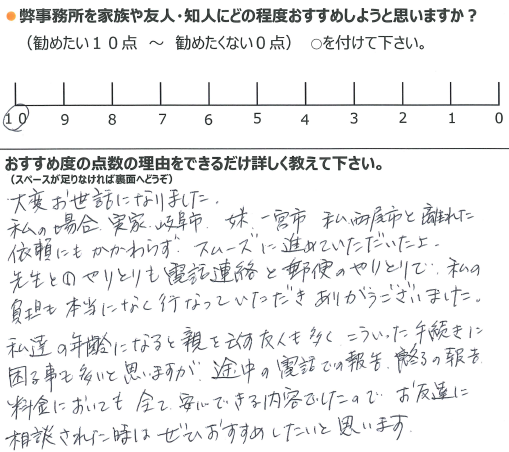 ●弊事務所を家族や友人・知人にどの程度おすすめしようと思いますか？
（勧めたい１０点　～　勧めたくない０点）　○を付けて下さい。
10 9 8 7 6 5 4 3 2 1 0
おすすめ度の点数の理由をできるだけ詳しく教えて下さい。
（スペースが足りなければ裏面へどうぞ）
大変お世話になりました。
私の場合、実家、岐阜市、妹、一宮市、私、西尾市と離れた
依頼にもかかわらず、スムーズに進めていただいたよ。
先生とのやりとりも電話連絡と郵便のやりとりで、私の
負担も本当になく行なっていただきありがうございました。
私達の年齢になると親を亡す友人も多く、こういった手続きに
困る事も多いと思いますが、途中の電話での報告、終了の報告、
料金においても全て、安心できる内容でしたので、お友達に
相談された時はぜひおすすめしたいと思います。